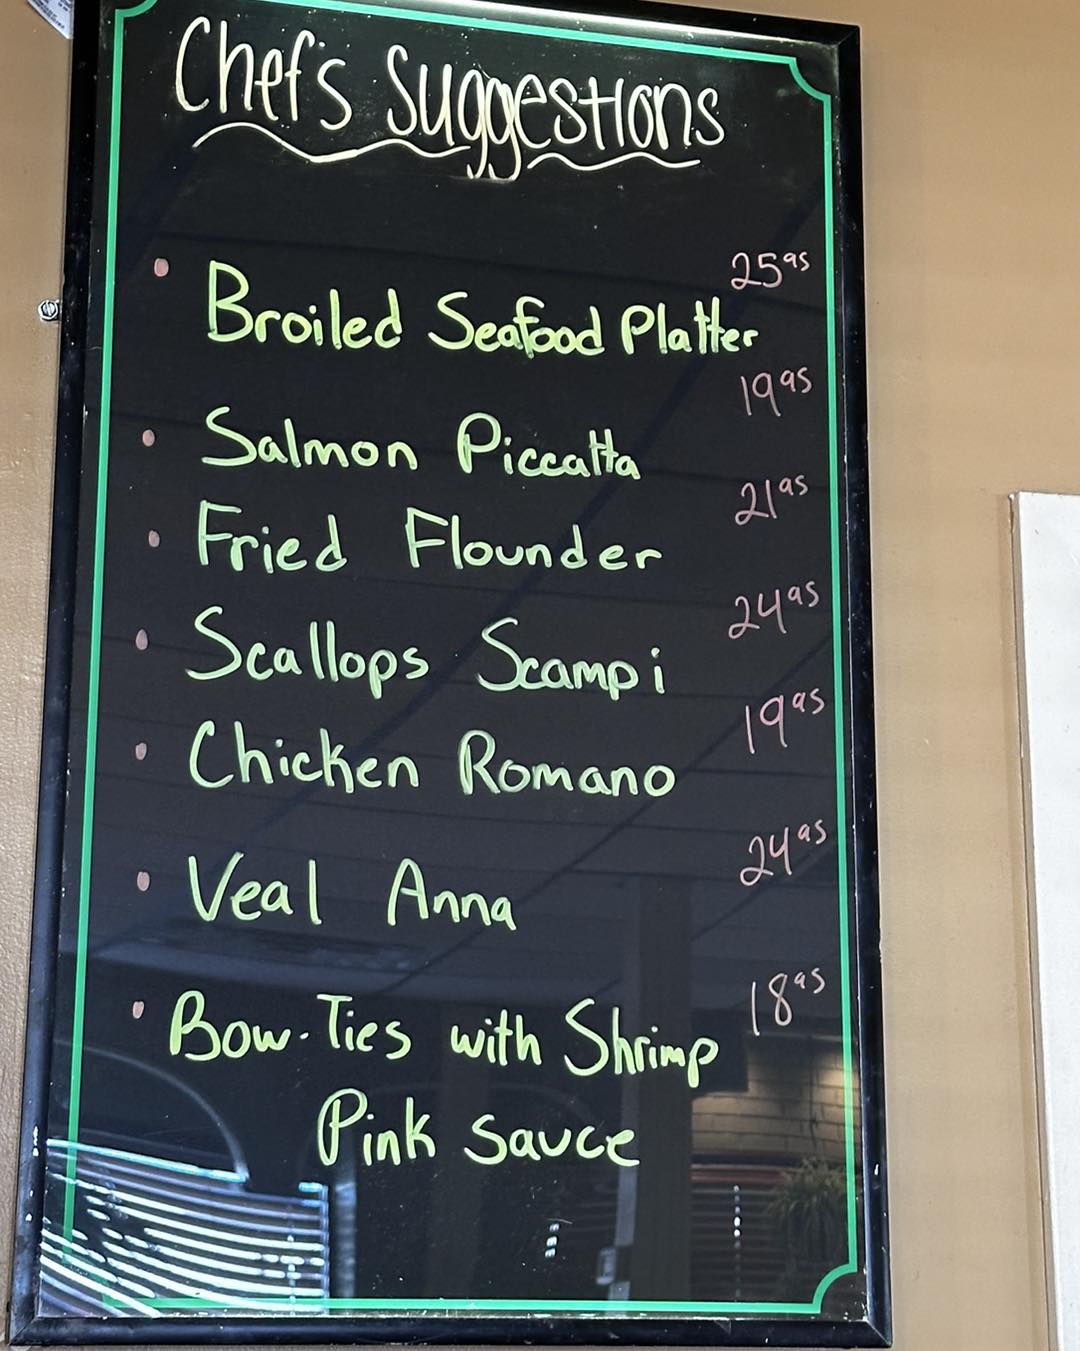 Chef's Suggestions
25 95
• Broiled Seafood Platter
19 95
• Salmon Piccatta
21 95
• Fried Flounder
24 95
• Scallops Scampi
19 95
• Chicken Romano
24 95
• Veal Anna
18 95
• Bow-Ties with Shrimp
Pink sauce